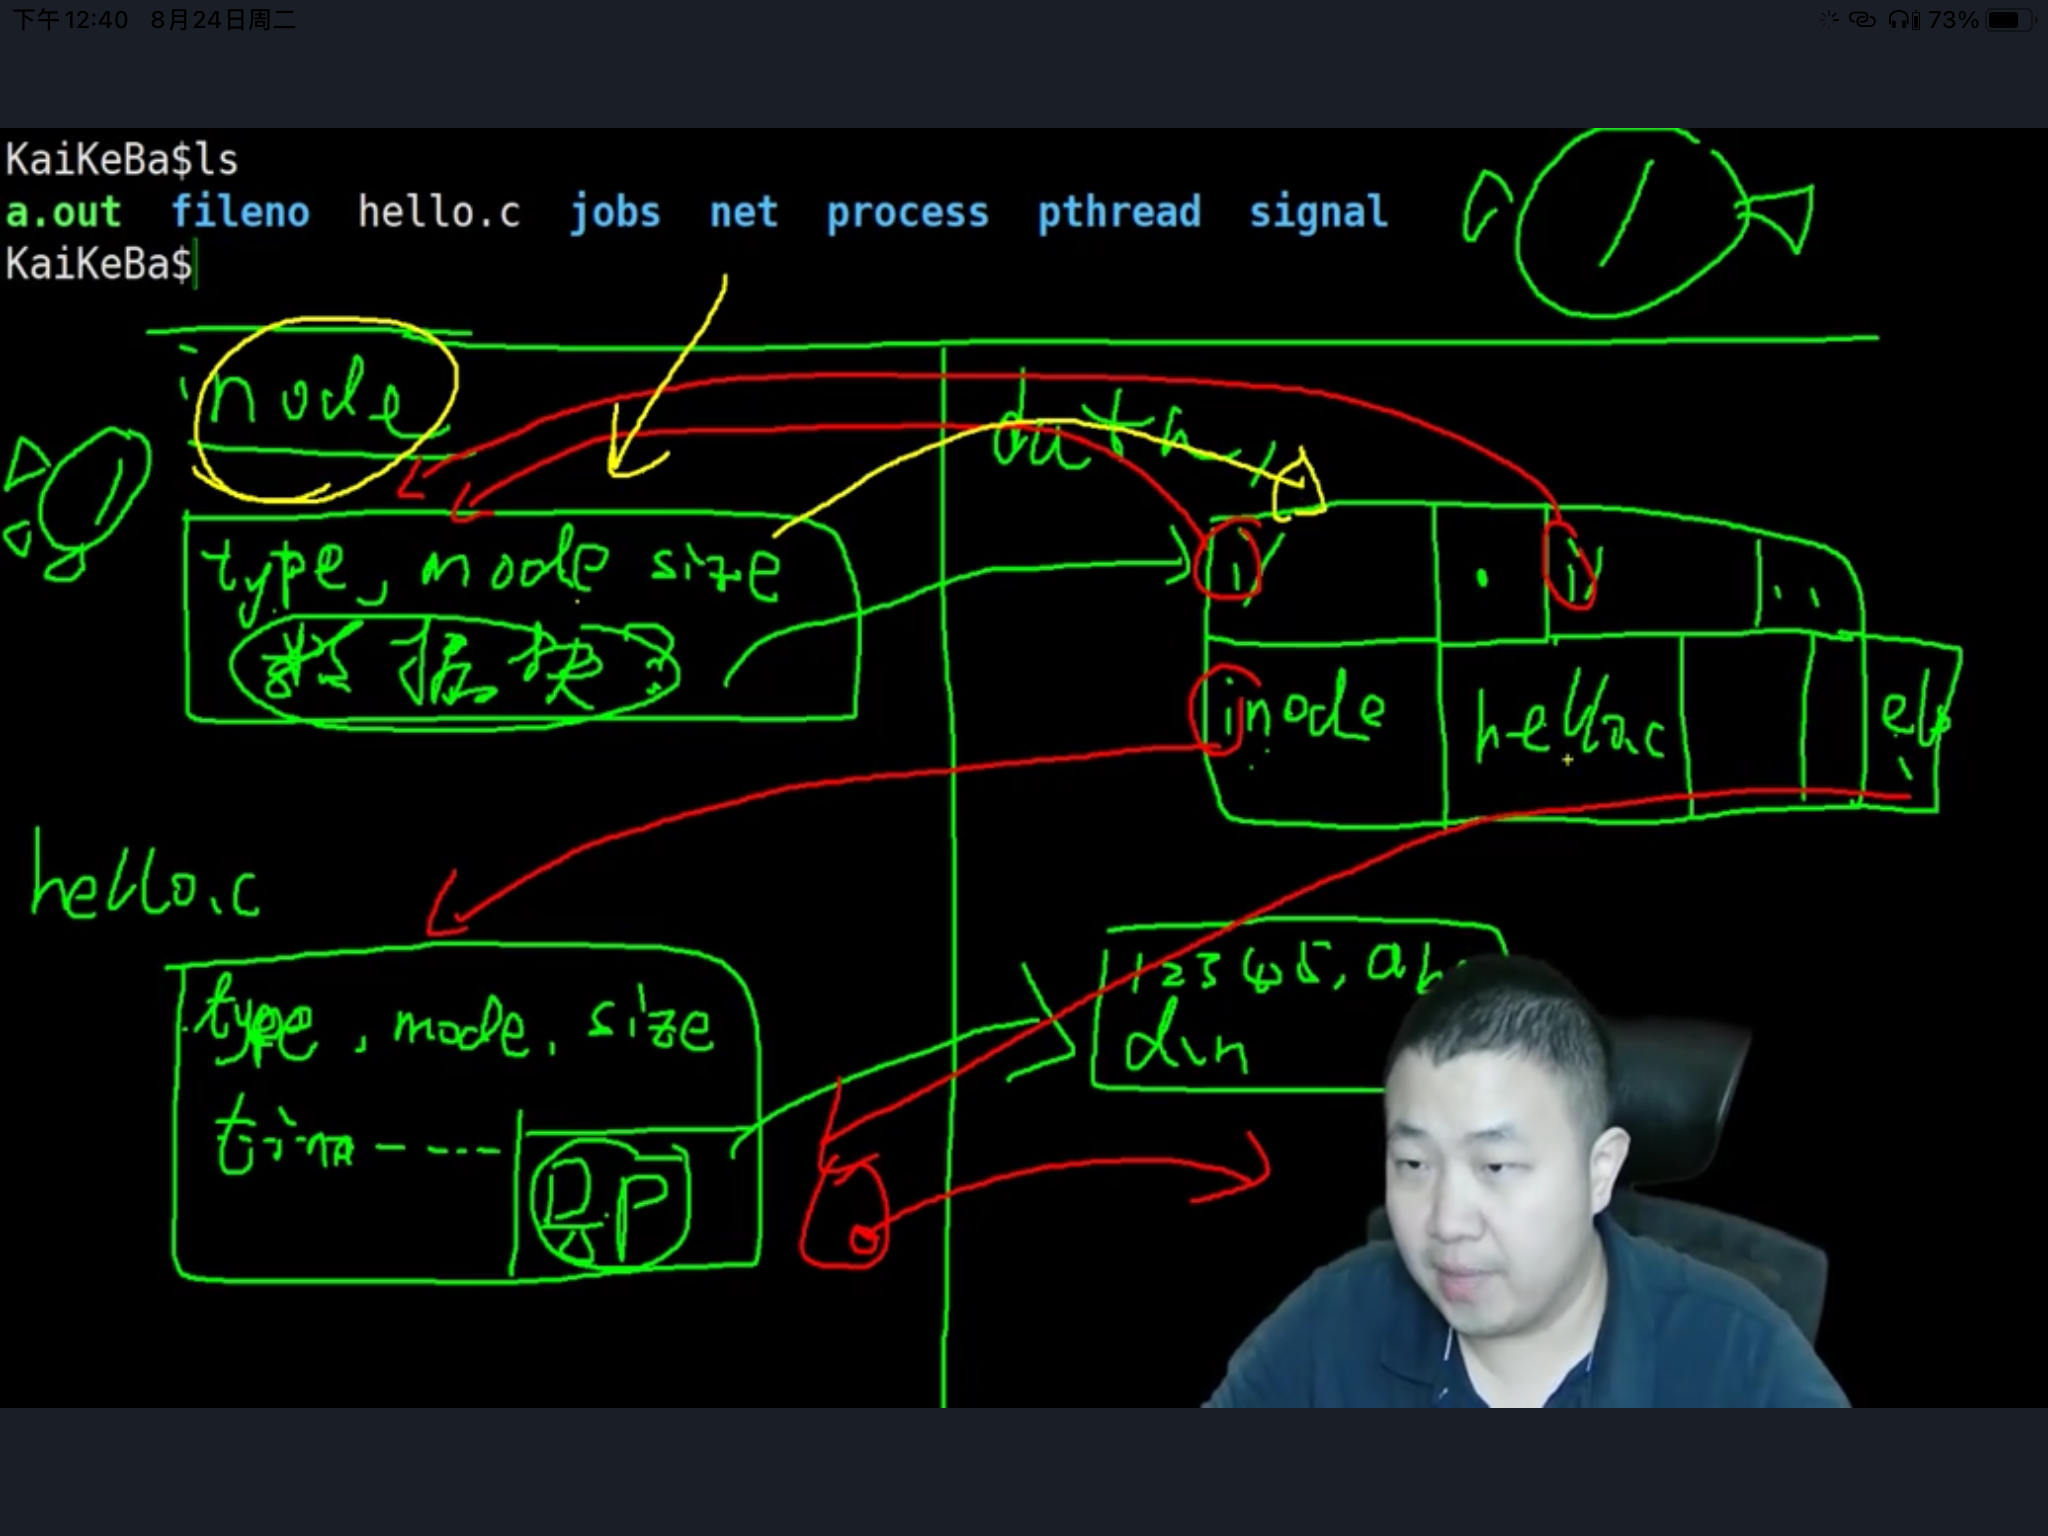 下午12:40 8月24日周二
73%
KaiKeBa$ls
a.out fileno hello.c jobs net process pthread signal
KaiKeBa$
/
inode
data
/
type, mode size
数据块
i . i ..
inode hello.c
hello.c
type, mode, size
12345, ab